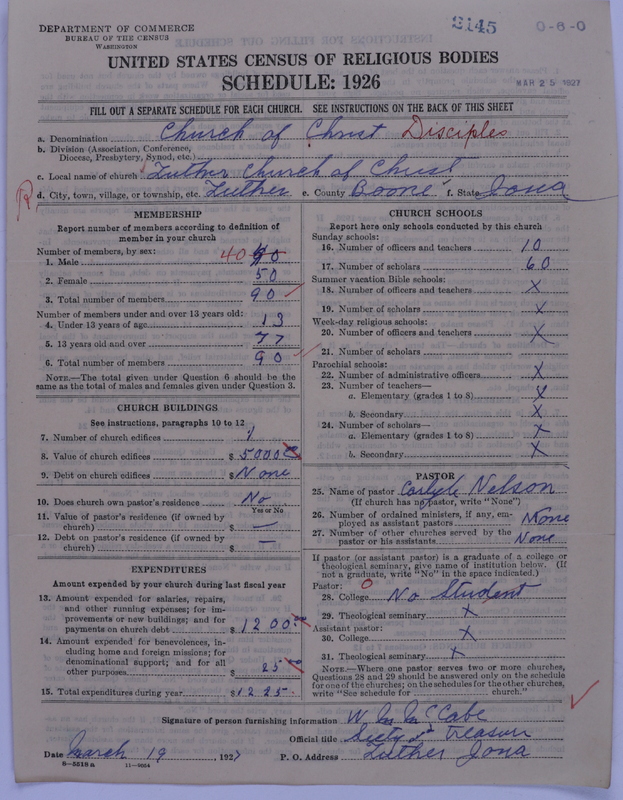 DEPARTMENT OF COMMERCE
BUREAU OF THE CENSUS
WASHINGTON
2145
0-6-0
UNITED STATES CENSUS OF RELIGIOUS BODIES
SCHEDULE: 1926
MAR 25 1927
FILL OUT A SEPARATE SCHEDULE FOR EACH CHURCH. SEE INSTRUCTIONS ON THE BACK OF THIS SHEET
a. Denomination Church of Christ Disciples
b. Division (Association, Conference,
Diocese, Presbytery, Synod, etc.)
c. Local name of church Luther Church of Christ
R d. City, town, village, or township, etc. Luther e. County Boone f. State Iowa
MEMBERSHIP
Report number of members according to definition of
member in your church
Number of members, by sex:
1. Male 40
2. Female 50
3. Total number of members 90
Number of members under and over 13 years old:
4. Under 13 years of age 13
5. 13 years old and over 77
6. Total number of members 90
NOTE.—The total given under Question 6 should be the
same as the total of males and females given under Question 3.
CHURCH BUILDINGS
See instructions, paragraphs 10 to 12
7. Number of church edifices 1
8. Value of church edifices $ 5000.00
9. Debt on church edifices $ None
10. Does church own pastor's residence No
Yes or No
11. Value of pastor's residence (if owned by
church) $ —
12. Debt on pastor's residence (if owned by
church) $ —
EXPENDITURES
Amount expended by your church during last fiscal year
13. Amount expended for salaries, repairs,
and other running expenses; for im-
provements or new buildings; and for
payments on church debt $ 1200.00
14. Amount expended for benevolences, in-
cluding home and foreign missions; for
denominational support; and for all
other purposes $ 25.00
15. Total expenditures during year $ 1225.
CHURCH SCHOOLS
Report here only schools conducted by this church
Sunday schools:
16. Number of officers and teachers 10
17. Number of scholars 60
Summer vacation Bible schools:
18. Number of officers and teachers X
19. Number of scholars X
Week-day religious schools:
20. Number of officers and teachers X
21. Number of scholars
Parochial schools:
22. Number of administrative officers X
23. Number of teachers—
a. Elementary (grades 1 to 8) X
b. Secondary X
24. Number of scholars—
a. Elementary (grades 1 to 8) X
b. Secondary X
PASTOR
25. Name of pastor Carlyle Nelson
(If church has no pastor, write "None")
26. Number of ordained ministers, if any, em-
ployed as assistant pastors None
27. Number of other churches served by the
pastor or his assistants None
If pastor (or assistant pastor) is a graduate of a college or
theological seminary, give name of institution below. (If
not a graduate, write "No" in the space indicated.)
Pastor: 0
28. College No Student
29. Theological seminary X
Assistant pastor:
30. College X
31. Theological seminary X
NOTE.—Where one pastor serves two or more churches,
Questions 28 and 29 should be answered only on the schedule
for one of the churches; on the schedules for the other churches,
write "See schedule for church."
Signature of person furnishing information W. M. McCabe
Official title Secty and Treasurer
Date March 19, 1927 P. O. Address Luther Iowa
8-5518a 11-9664